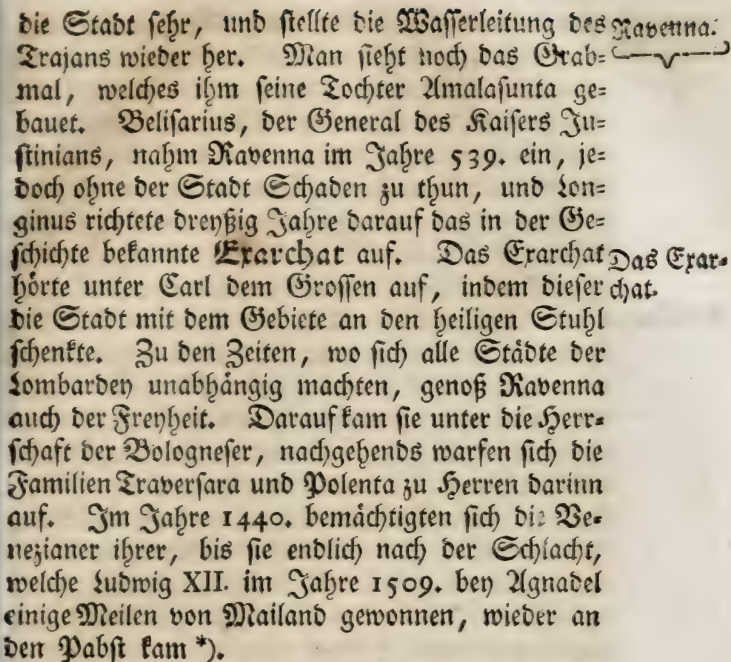 die Stadt sehr, und stellte die Wasserleitung des
Ravenna.
Trajans wieder her. Man sieht noch das Grab-
mal, welches ihm seine Tochter Amalasunta ge-
bauet. Belisarius, der General des Kaisers Ju-
stinians, nahm Ravenna im Jahre 539. ein, je-
doch ohne der Stadt Schaden zu thun, und Lon-
ginus richtete dreyßig Jahre darauf das in der Ge-
schichte bekannte Exarchat auf. Das Exarchat
Das Exar-
chat.
hörte unter Carl dem Grossen auf, indem dieser
die Stadt mit dem Gebiete an den heiligen Stuhl
schenkte. Zu den Zeiten, wo sich alle Städte der
Lombardey unabhängig machten, genoß Ravenna
auch der Freyheit. Darauf kam sie unter die Herr-
schaft der Bologneser, nachgehends warfen sich die
Familien Traversara und Polenta zu Herren darinn
auf. Im Jahre 1440. bemächtigten sich die Ve-
nezianer ihrer, bis sie endlich nach der Schlacht,
welche Ludwig XII. im Jahre 1509. bey Agnadel
einige Meilen von Mailand gewonnen, wieder an
den Pabst kam *).